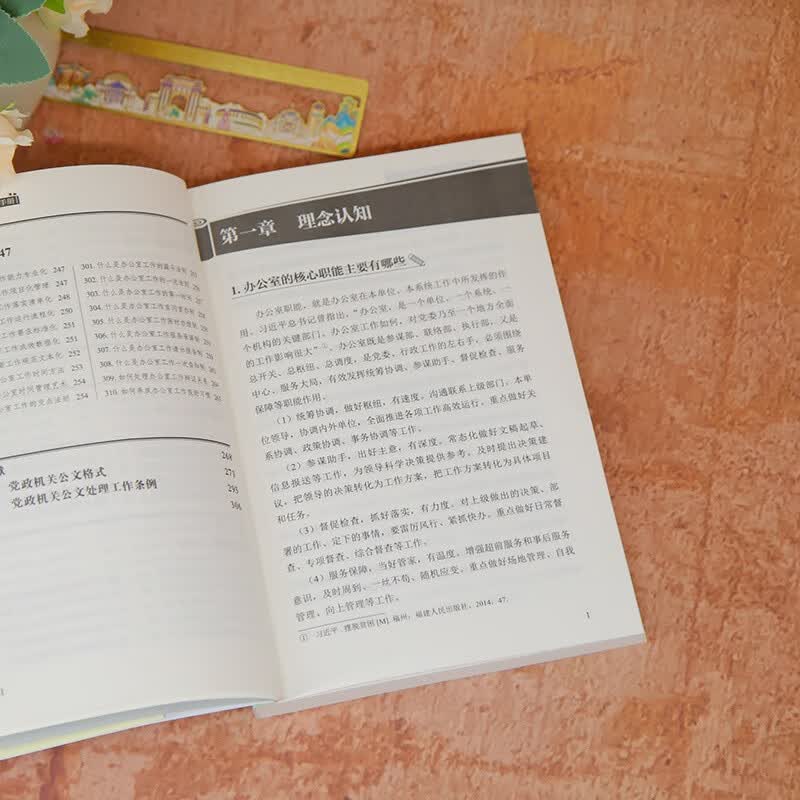 手册
247
作能力专业化 247
工作项目化管理 247
工作落实清单化 248
工作运行流程化 250
工作要求标准化 251
工作成效数据化 251
工作规范文本化 251
工作时间方法 251
室时间管理艺术 254
公室工作的交点法则 254
301. 什么是办公室工作的
302. 什么是办公室工作的一次法则
303. 什么是办公室工作的第一时间
304. 什么是办公室工作
305. 什么是办公室工作
306. 什么是办公室工作
307. 什么是办公室工作
308. 什么是办公室工作一次会
309. 如何处理办公室工作
310. 如何养成办公室工作
献 268
党政机关公文格式 271
党政机关公文处理工作条例 295
306
第一章 理念认知
1. 办公室的核心职能主要有哪些
办公室职能，就是办公室在本单位、本系统工作中所发挥的作
用。习近平总书记曾指出，“办公室，是一个单位、一个系统、一
个机构的关键部门。办公室工作如何，对党委乃至一个地方全面
的工作影响很大”①。办公室既是参谋部、联络部、执行部，又是
总开关、总枢纽、总调度，是党委、行政工作的左右手，必须围绕
中心、服务大局，有效发挥统筹协调、参谋助手、督促检查、服务
保障等职能作用。
（1）统筹协调，做好枢纽，有速度。沟通联系上级部门、本单
位领导，协调内外单位，全面推进各项工作高效运行。重点做好关
系协调、政策协调、事务协调等工作。
（2）参谋助手，出好主意，有深度。常态化做好文稿起草、
信息报送等工作，为领导科学决策提供参考。及时提出决策建
议，把领导的决策转化为工作方案，把工作方案转化为具体项目
和任务。
（3）督促检查，抓好落实，有力度。对上级做出的决策、部
署的工作、定下的事情，要雷厉风行、紧抓快办。重点做好日常督
查、专项督查、综合督查等工作。
（4）服务保障，当好管家，有温度。增强超前服务和事后服务
意识，及时周到、一丝不苟、随机应变。重点做好场地管理、自我
管理、向上管理等工作。
① 习近平. 摆脱贫困[M]. 福州：福建人民出版社，2014：47.
1